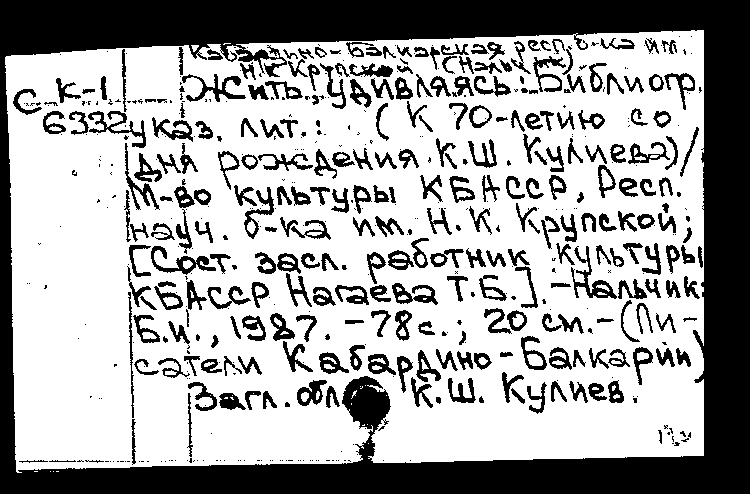 Кабардино-Балкарская респ. б-ка им.
Н.К Крупской (Нальчик)
С К-1 Жить, удивляясь: Библиогр.
6332 указ. лит.: (К 70-летию со
дня рождения К.Ш. Кулиева)/
М-во культуры КБАССР, Респ.
науч. б-ка им. Н.К. Крупской;
[Сост. засл. работник культуры
КБАССР Нагаева Т.Б.]. -Нальчик:
Б.и., 1987. -78с.; 20 см.-(Пи-
сатели Кабардино-Балкарии)
Загл. обл. К.Ш. Кулиев.